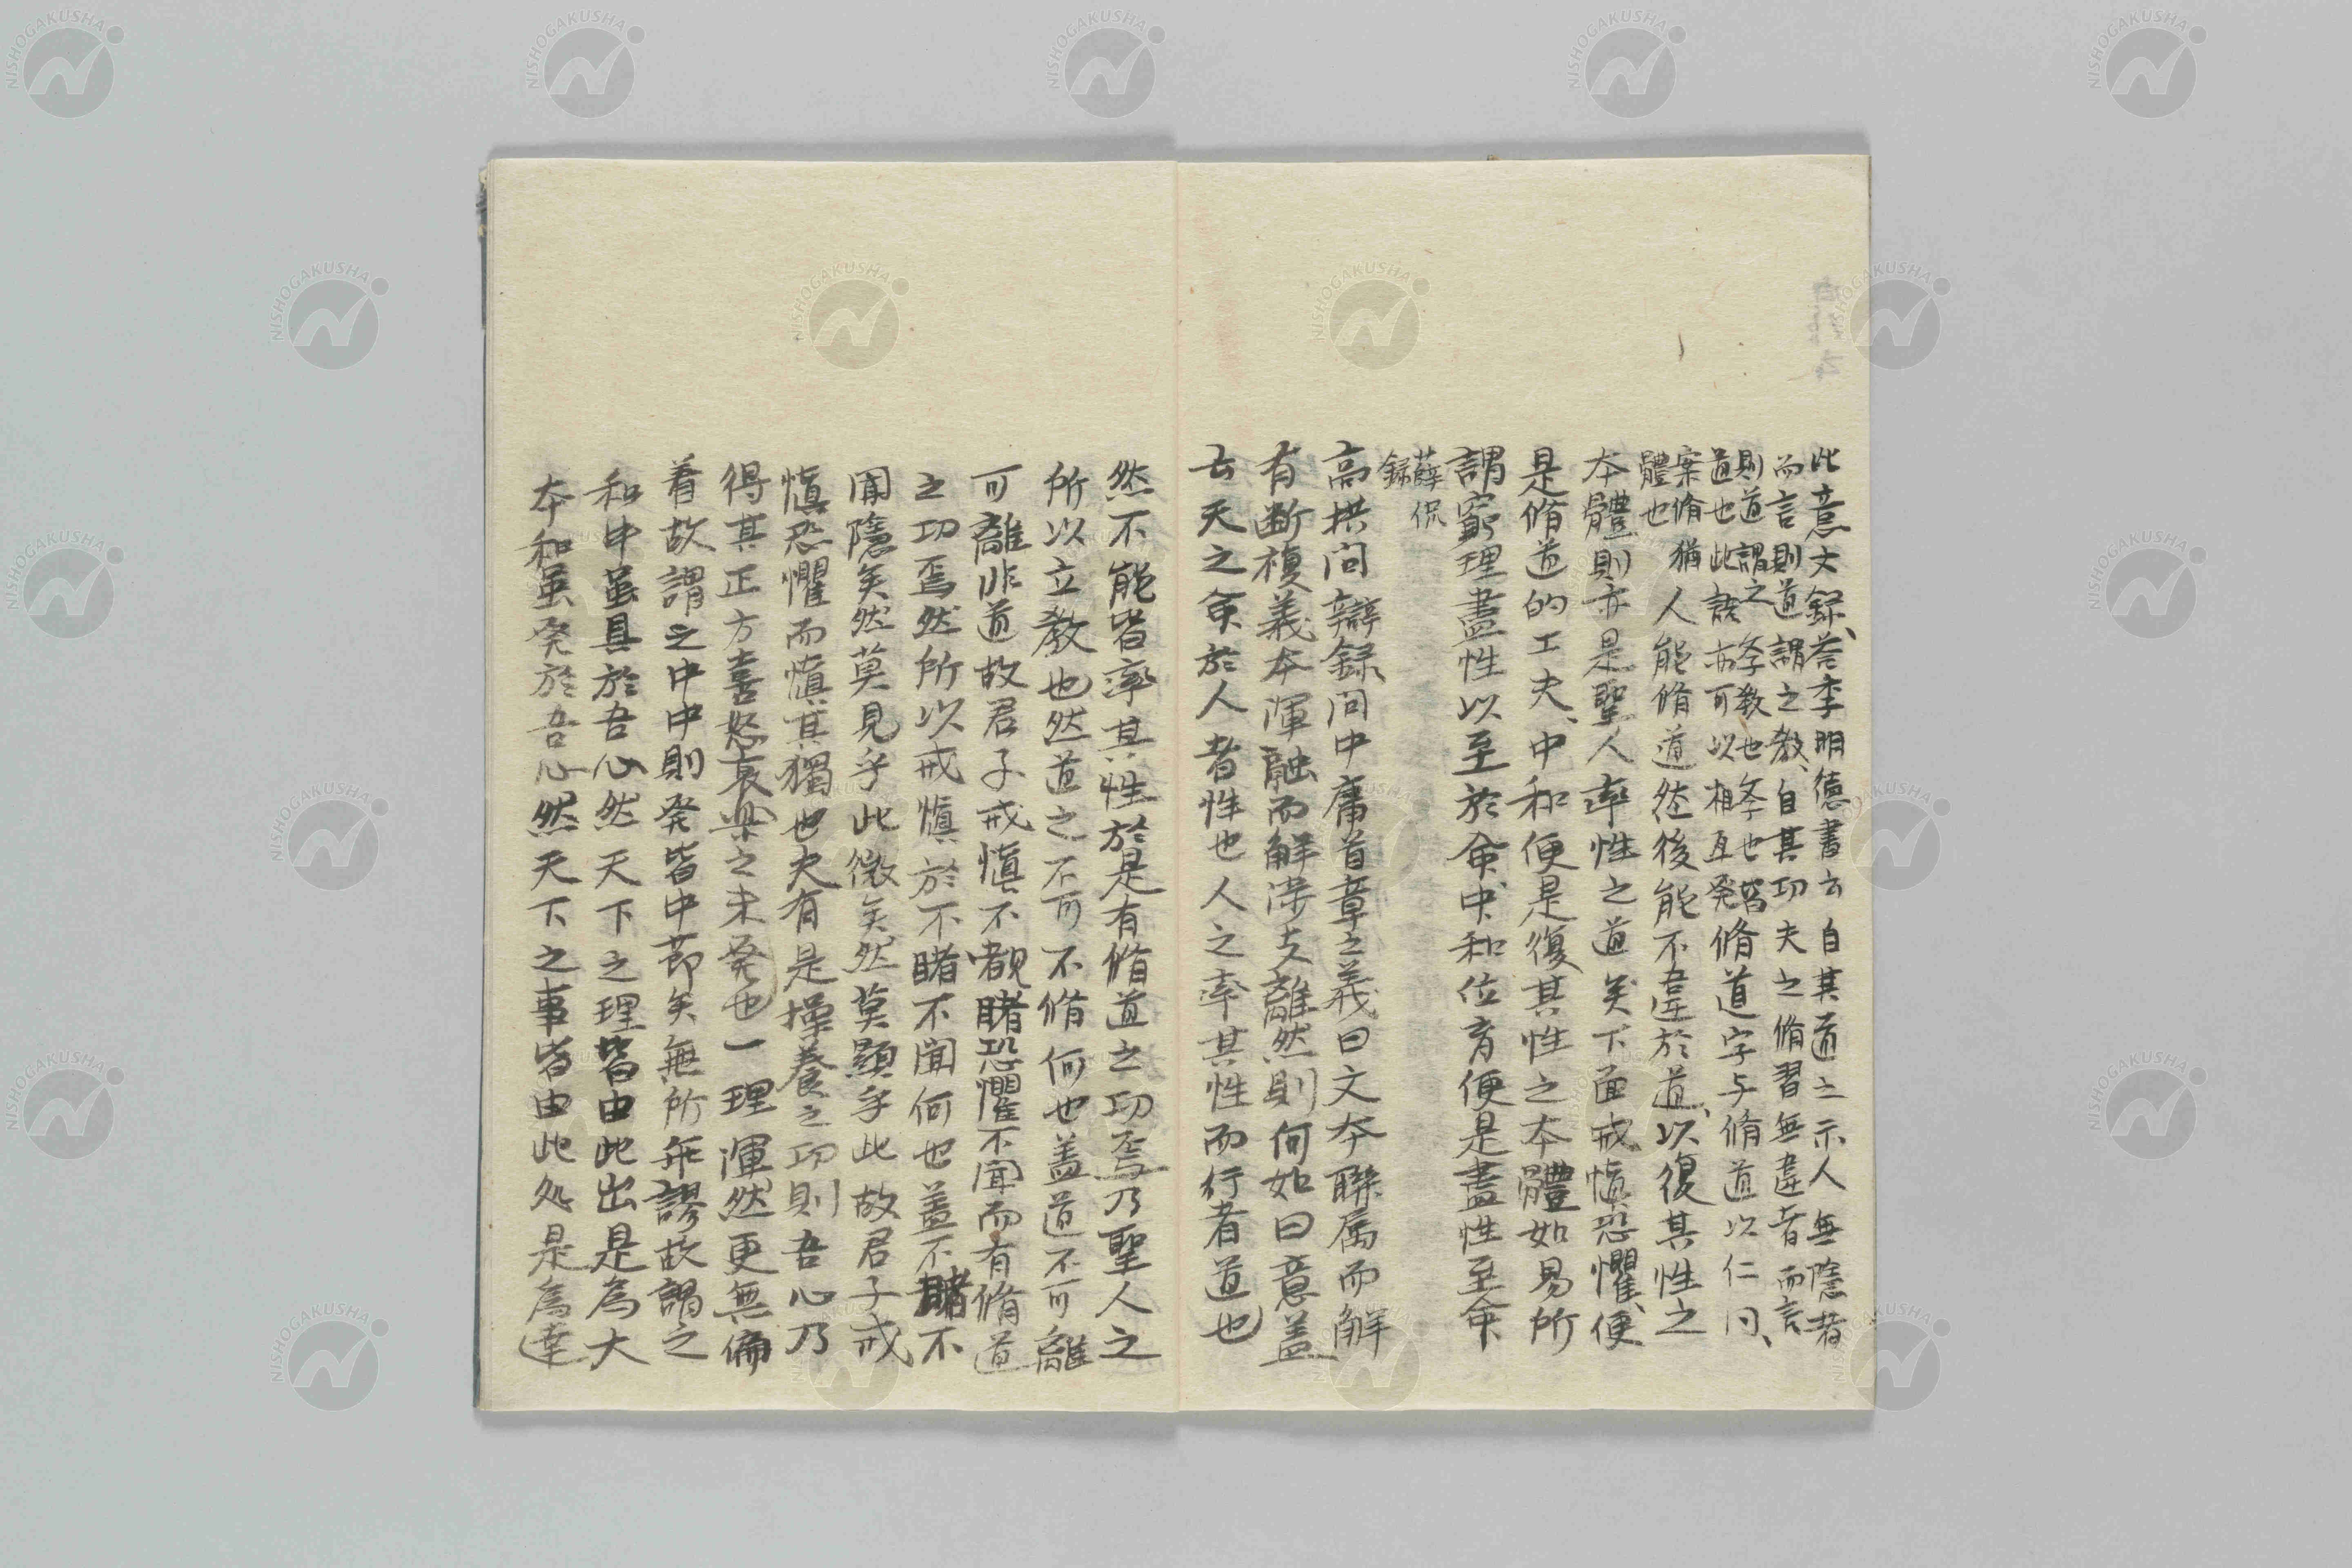 此意文録答李明德書云自其道之示人無隱者
而言則道謂之教自其功夫之脩習無違者而言
則道謂之
道也此說亦可以相互発脩道字与脩道以仁同
案脩猶
體也
人能脩道然後能不違於道以復其性之
本體則亦是聖人率性之道矣下面戒慎恐懼便
是脩道的工夫中和便是復其性之本體如易所
謂窮理盡性以至於命中和位育便是盡性至命
薛侃
録
高拱問辯録問中庸首章之義曰文本聯属而解
有断複義本渾融而解渉支離然則何如曰意盖
云天之命於人者性也人之率其性而行者道也
然不能皆率其性於是有脩道之功焉乃聖人之
所以立教也然道之不可不脩何也盖道不可離
可離非道故君子戒慎不覩睹恐懼不聞而有脩道
之功焉然所以戒慎於不睹不聞何也盖不睹不
聞隱矣然莫見乎此微矣然莫顯乎此故君子戒
慎恐懼而慎其獨也夫有是操養之功則吾心乃
得其正方喜怒哀楽之未発也一理渾然更無偏
着故謂之中中則発皆中節矣無所乖謬故謂之
和中虽具於吾心然天下之理皆由此出是為大
本和虽発於吾心然天下之事皆由此処是為達
NISHOGAKUSHA